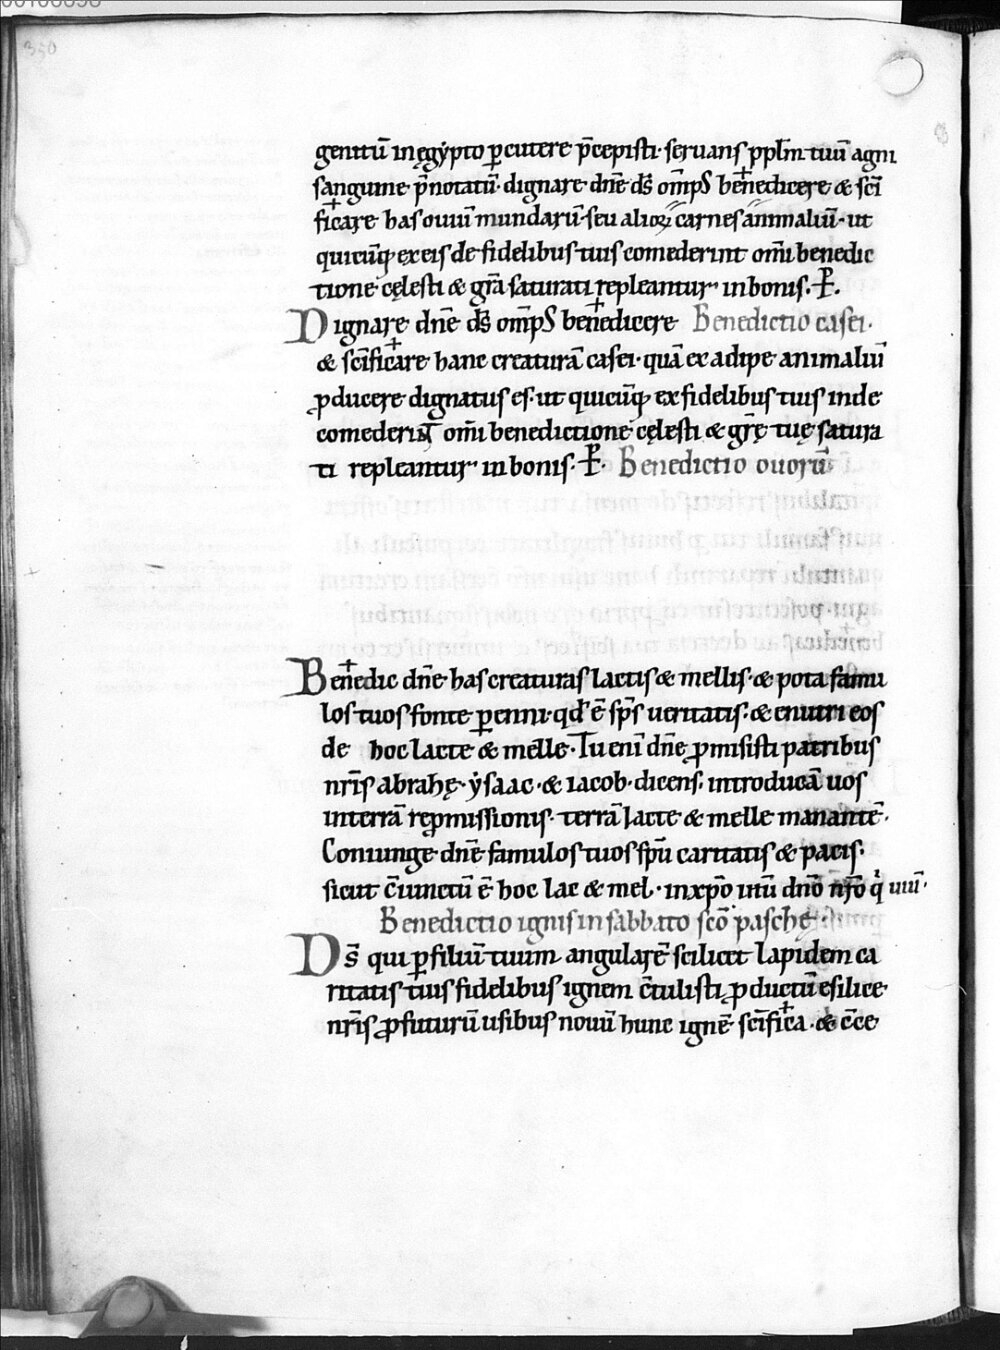 330
genitū in ęgẏpto ꝑcutere p̄cepisti· seruans pplm̄ tuū agni
sanguine p̄notatū· dignare dn̄e ds̄ om̄ps bene✝dicere & sc̄i
fi✝care has ouiū mundarū· seu alioꝝ carnes animaliū· ut
quicūq; ex eis de fidelibus tuis comederint om̄i benedic
tione cęlesti & gr̄a saturati repleantur in bonis. P̄.
Dignare dn̄e ds̄ om̄ps bene✝dicere Benedictio casei·
& sc̄ifi✝care hanc creaturā casei· quā ex adipe animaliū
ꝓducere dignatus es· ut quicūq; ex fidelibus tuis inde
comederint om̄i benedictione cęlesti & gr̄ę tuę satura
ti repleantur in bonis. P̄. Benedictio ouorū
Bene✝dic dn̄e has creaturas lactis & mellis· & pota famu
los tuos fonte ꝑenni· qd̄ ē sps̄ ueritatis· & enutri eos
de hoc lacte & melle· Tu eni dn̄e ꝓmisisti patribus
nr̄is abrahę· ẏsaac· & iacob· dicens· introducā uos
in terrā reꝓmissionis· terrā lacte & melle manantē·
Coniunge dn̄e famulos tuos spū caritatis & pacis·
sicut c̄iunctū ē hoc lac & mel· in xp̄o ihū dn̄o nr̄o q̇ uiū·
Benedictio ignis in sabbato sc̄o paschę·
Ds̄ qui ꝑ filiū tuum angularē scilicet lapidem ca
ritatis tuis fidelibus ignem c̄tulisti ꝓductū e silice
nr̄is ꝓfuturū usibus nouū hunc ignē sc̄ifi✝ca· & c̄ce